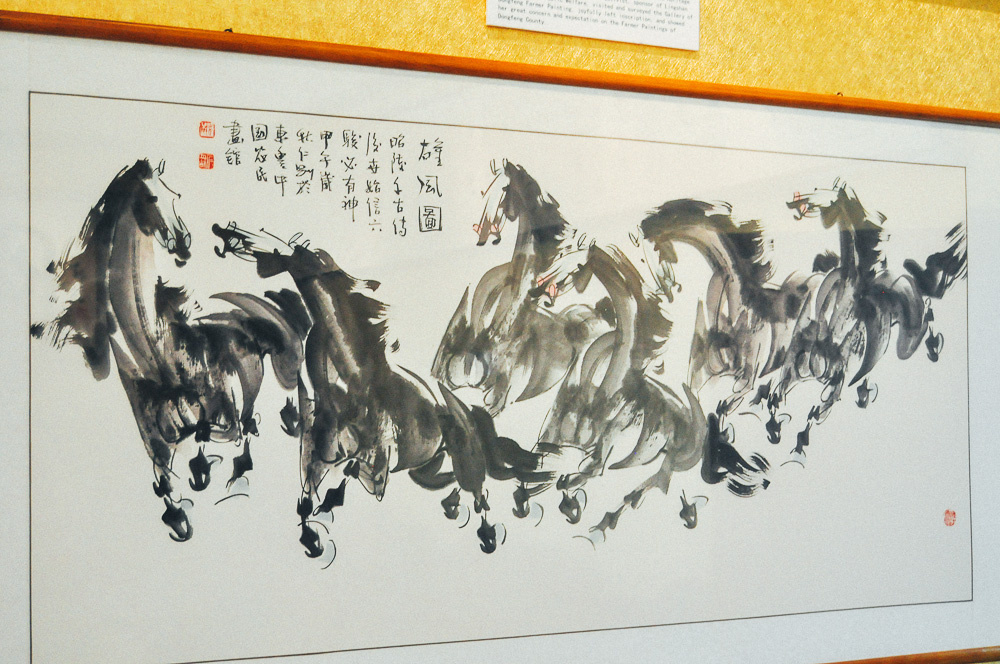 Welfare, visited and surveyed the Gallery of
Farmer Painting, joyfully left inscription, and showed
her great concern and expectation on the Farmer Paintings of
Dongfeng County.
雄风圖
昭陵千古传
後世始信六
駿必有神
甲午歲
秋仁剛於
東豊中
國农民
畫館